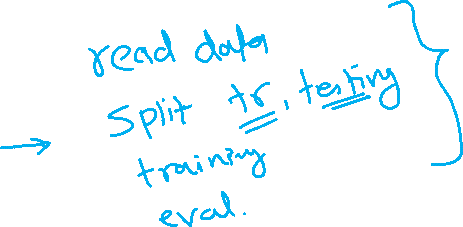 read data
split tr, testing
training
eval.